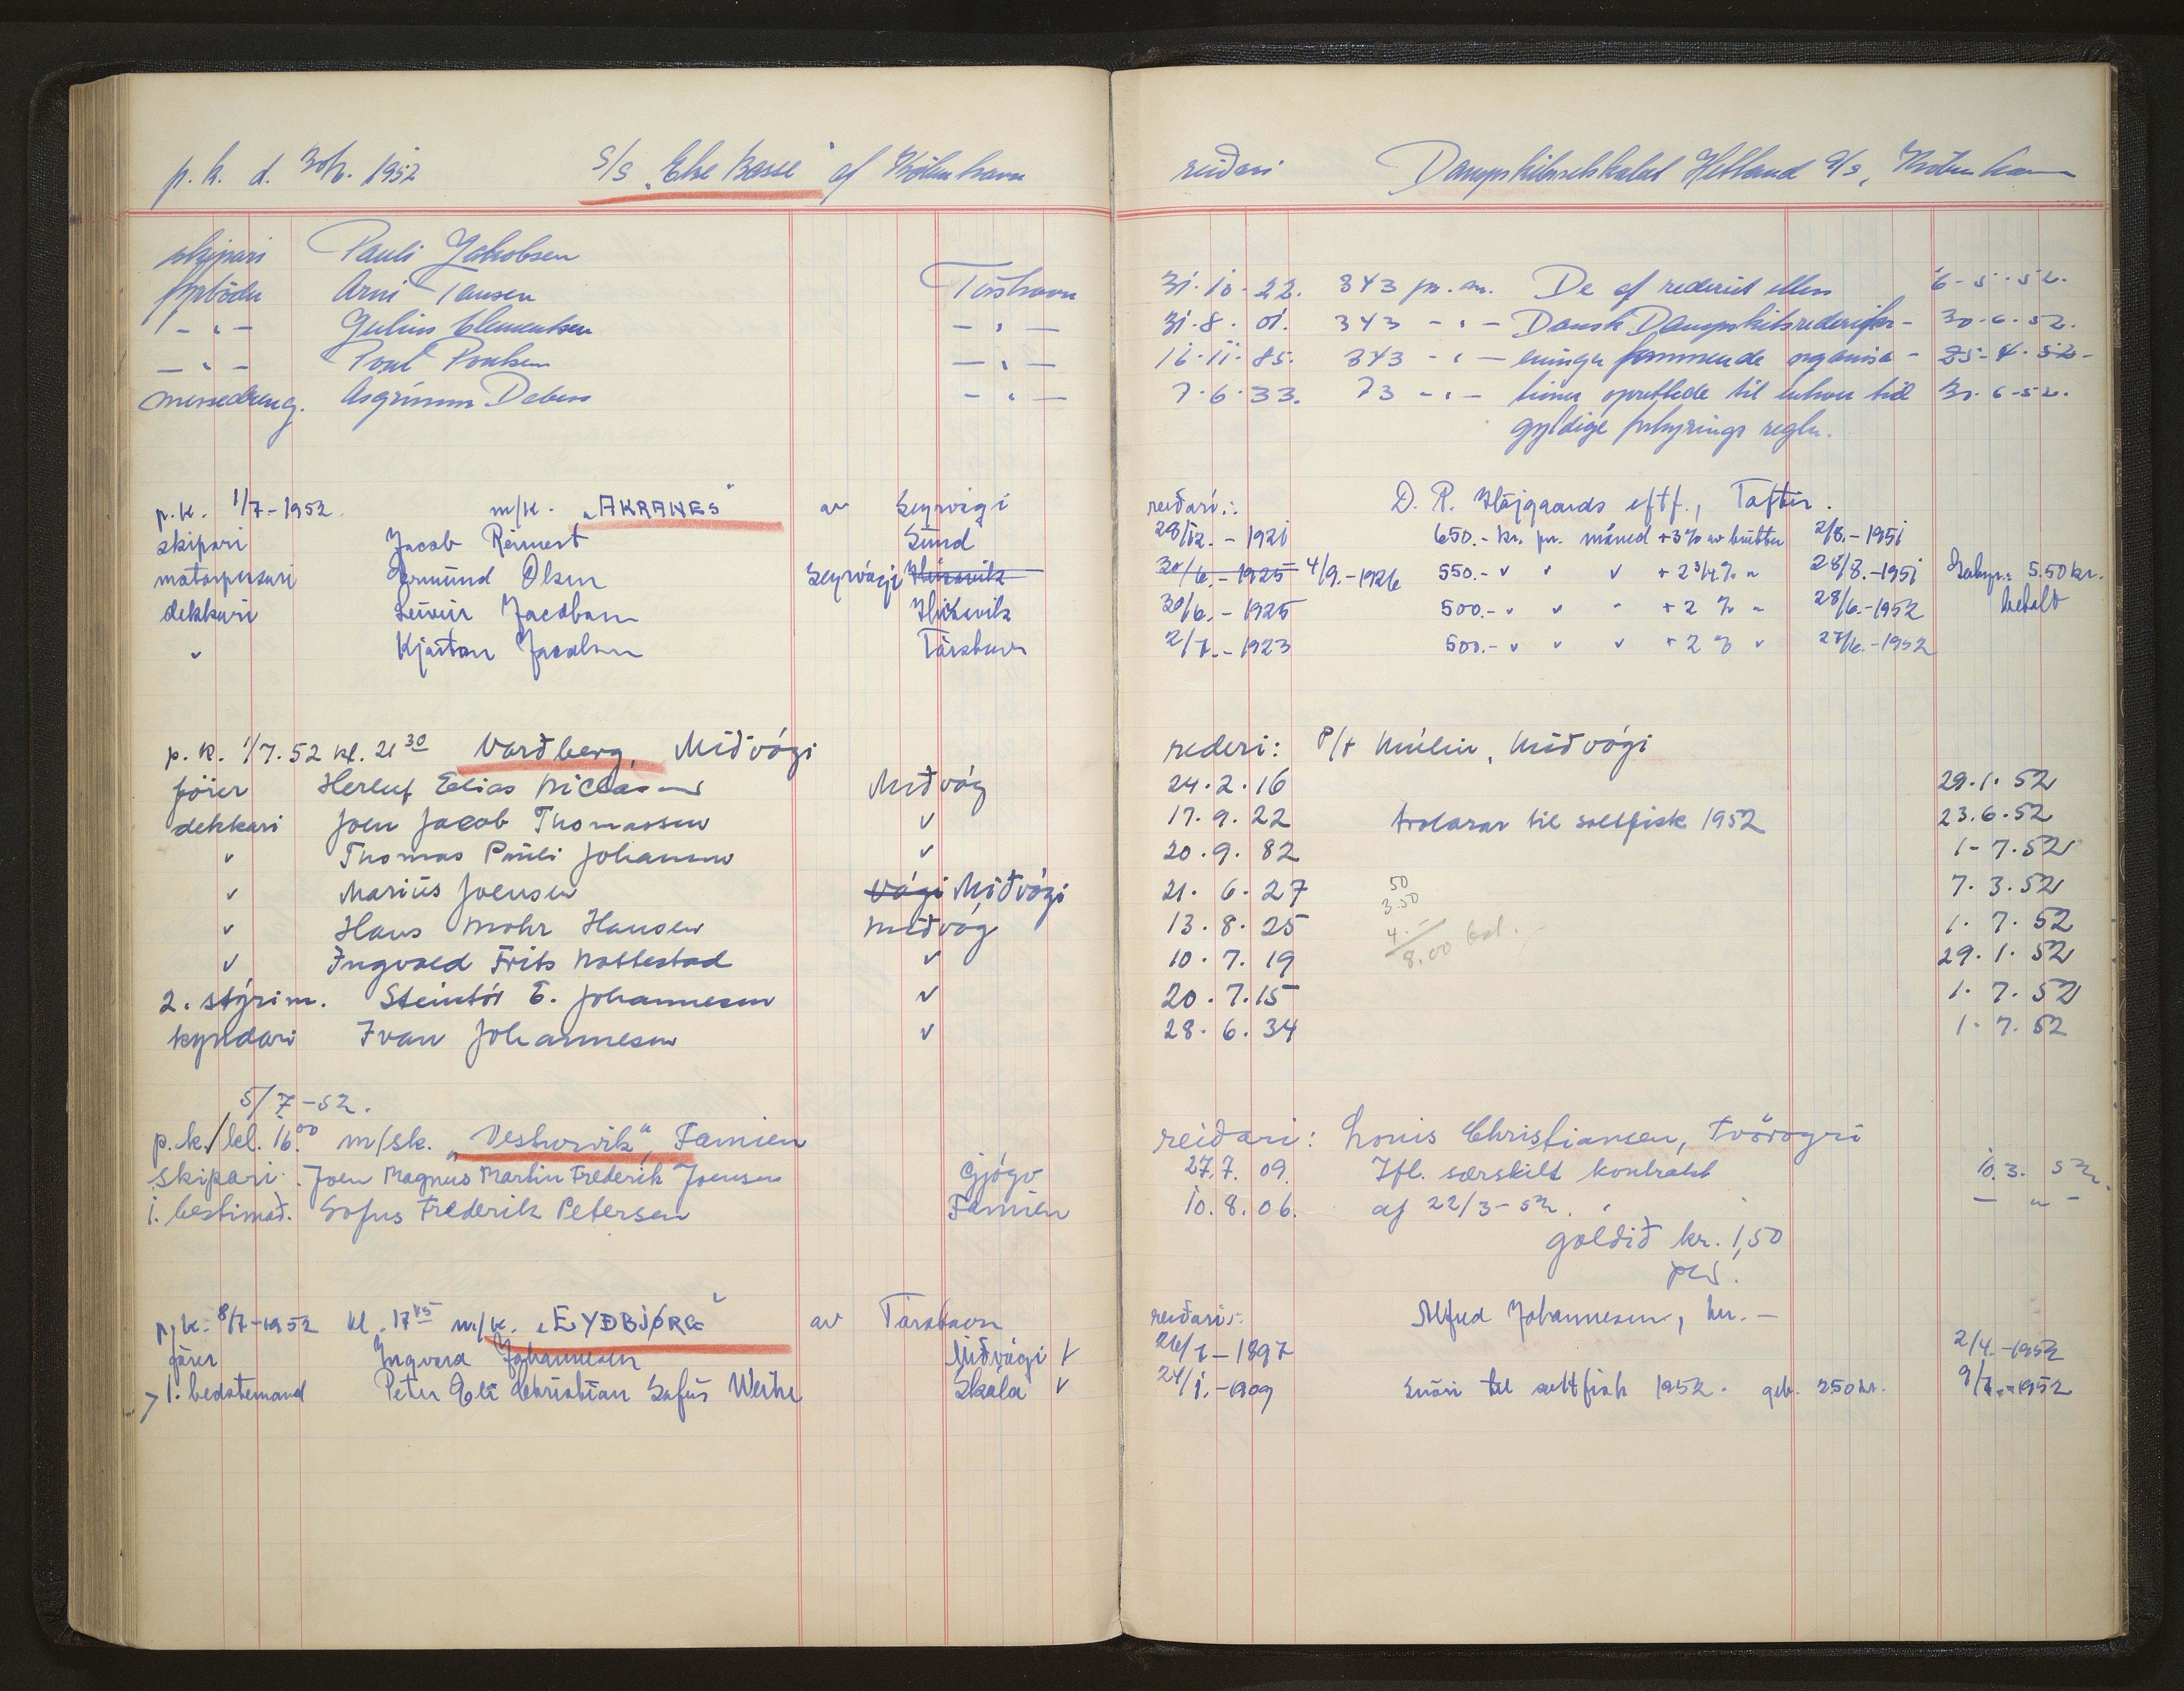 p.k. d. 30/6. 1952 S/S "Else Basse" af København
skipari Pauli Jakobsen
fyrbødu Arni Tausen Tórshavn
- " - Julius Clementsen - " -
- " - Poul Poulsen - " -
messedreng. Asgrimm Debess - " -
p.k. 1/7-1952. m/k. "AKRANES" av Seyrvági
skipari Jacob Reinert Sund
motorpassari Jormund Olsen Seyrvági
dekkari Jacobsen
" Kjartan Jacobsen Tórshavn
p.k. 1/7.52 kl. 21 30 Varðberg, Miðvági
förer Herluf Elias Niclasen Miðvág
dekkari Joen Jacob Thomassen "
" Thomas Pauli Johansen "
" Marius Joensen Vági Miðvági
" Hans Mohr Hansen Miðvág
" Ingvald Frits Nattestad "
2. stýrim. Steintór E. Johannesen "
kyndari Ivan Johannesen "
5/7-52.
p.k./kl. 16.00 m/sk. "Vesturvík", Famien
skipari Joen Magnus Martin Frederik Joensen Gjógv
1. bestimað. Sofus Frederik Petersen Famien
p.k. 8/7-1952 kl. 17 45 m/k. "EYÐBJØRG" av Tórshavn
förer Ingvard Johannesen Miðvági
1. bedstemand Peter Eli Christian Sofus Weihe Skála
reiðari Dampskibsselskabet Hetland A/S, København
31.10.22. 343 pr. m. De af rederiet ellers 6-5-52.
31.8.01. 343 - " - Dansk Dampskibsrederifor- 30.6.52.
16.11.85. 343 - " - eningen organisa- 25-4-52-
7.6.33. 73 - " - tioner oprettede til enhver tid 30.6-52.
gyldige forhyrings regler.
reiðari: D. P. Højgaards eftf., Toftir.
28/12. - 1921 650.- kr. pr. máned + 3% av brutto 2/8.-1951
30/6.-1925 4/9.-1926 550.- " " " + 2 3/4% " 28/8.-1951 5.50 kr.
30/6.-1925 500.- " " " + 2 % " 28/6.-1952 betalt
2/7.-1923 500.- " " " + 2 % " 27/6.-1952
rederi: P/f Múlin, Miðvági
24.2.16 29.1.52
17.9.22 trolarar til saltfisk 1952 23.6.52
20.9.82 1-7.52
21.6.27 50 7.3.52
3.50
13.8.25 4.- 1.7.52
8.00 bet.
10.7.19 29.1.52
20.7.15 1.7.52
28.6.34 1-7.52
reiðari: Louis Christiansen, Tvöroyri
27.7.09. Ifl. særskilt kontrakt 10.3.52.
10.8.06. af 22/3-52. - " -
goldið kr. 1,50
reiðari: Alfred Johannesen, her. -
26/7-1897 2/4.-1952
24/1.-1909 Snöri til saltfisk 1952. geb. 250 kr. 9/7.-1952